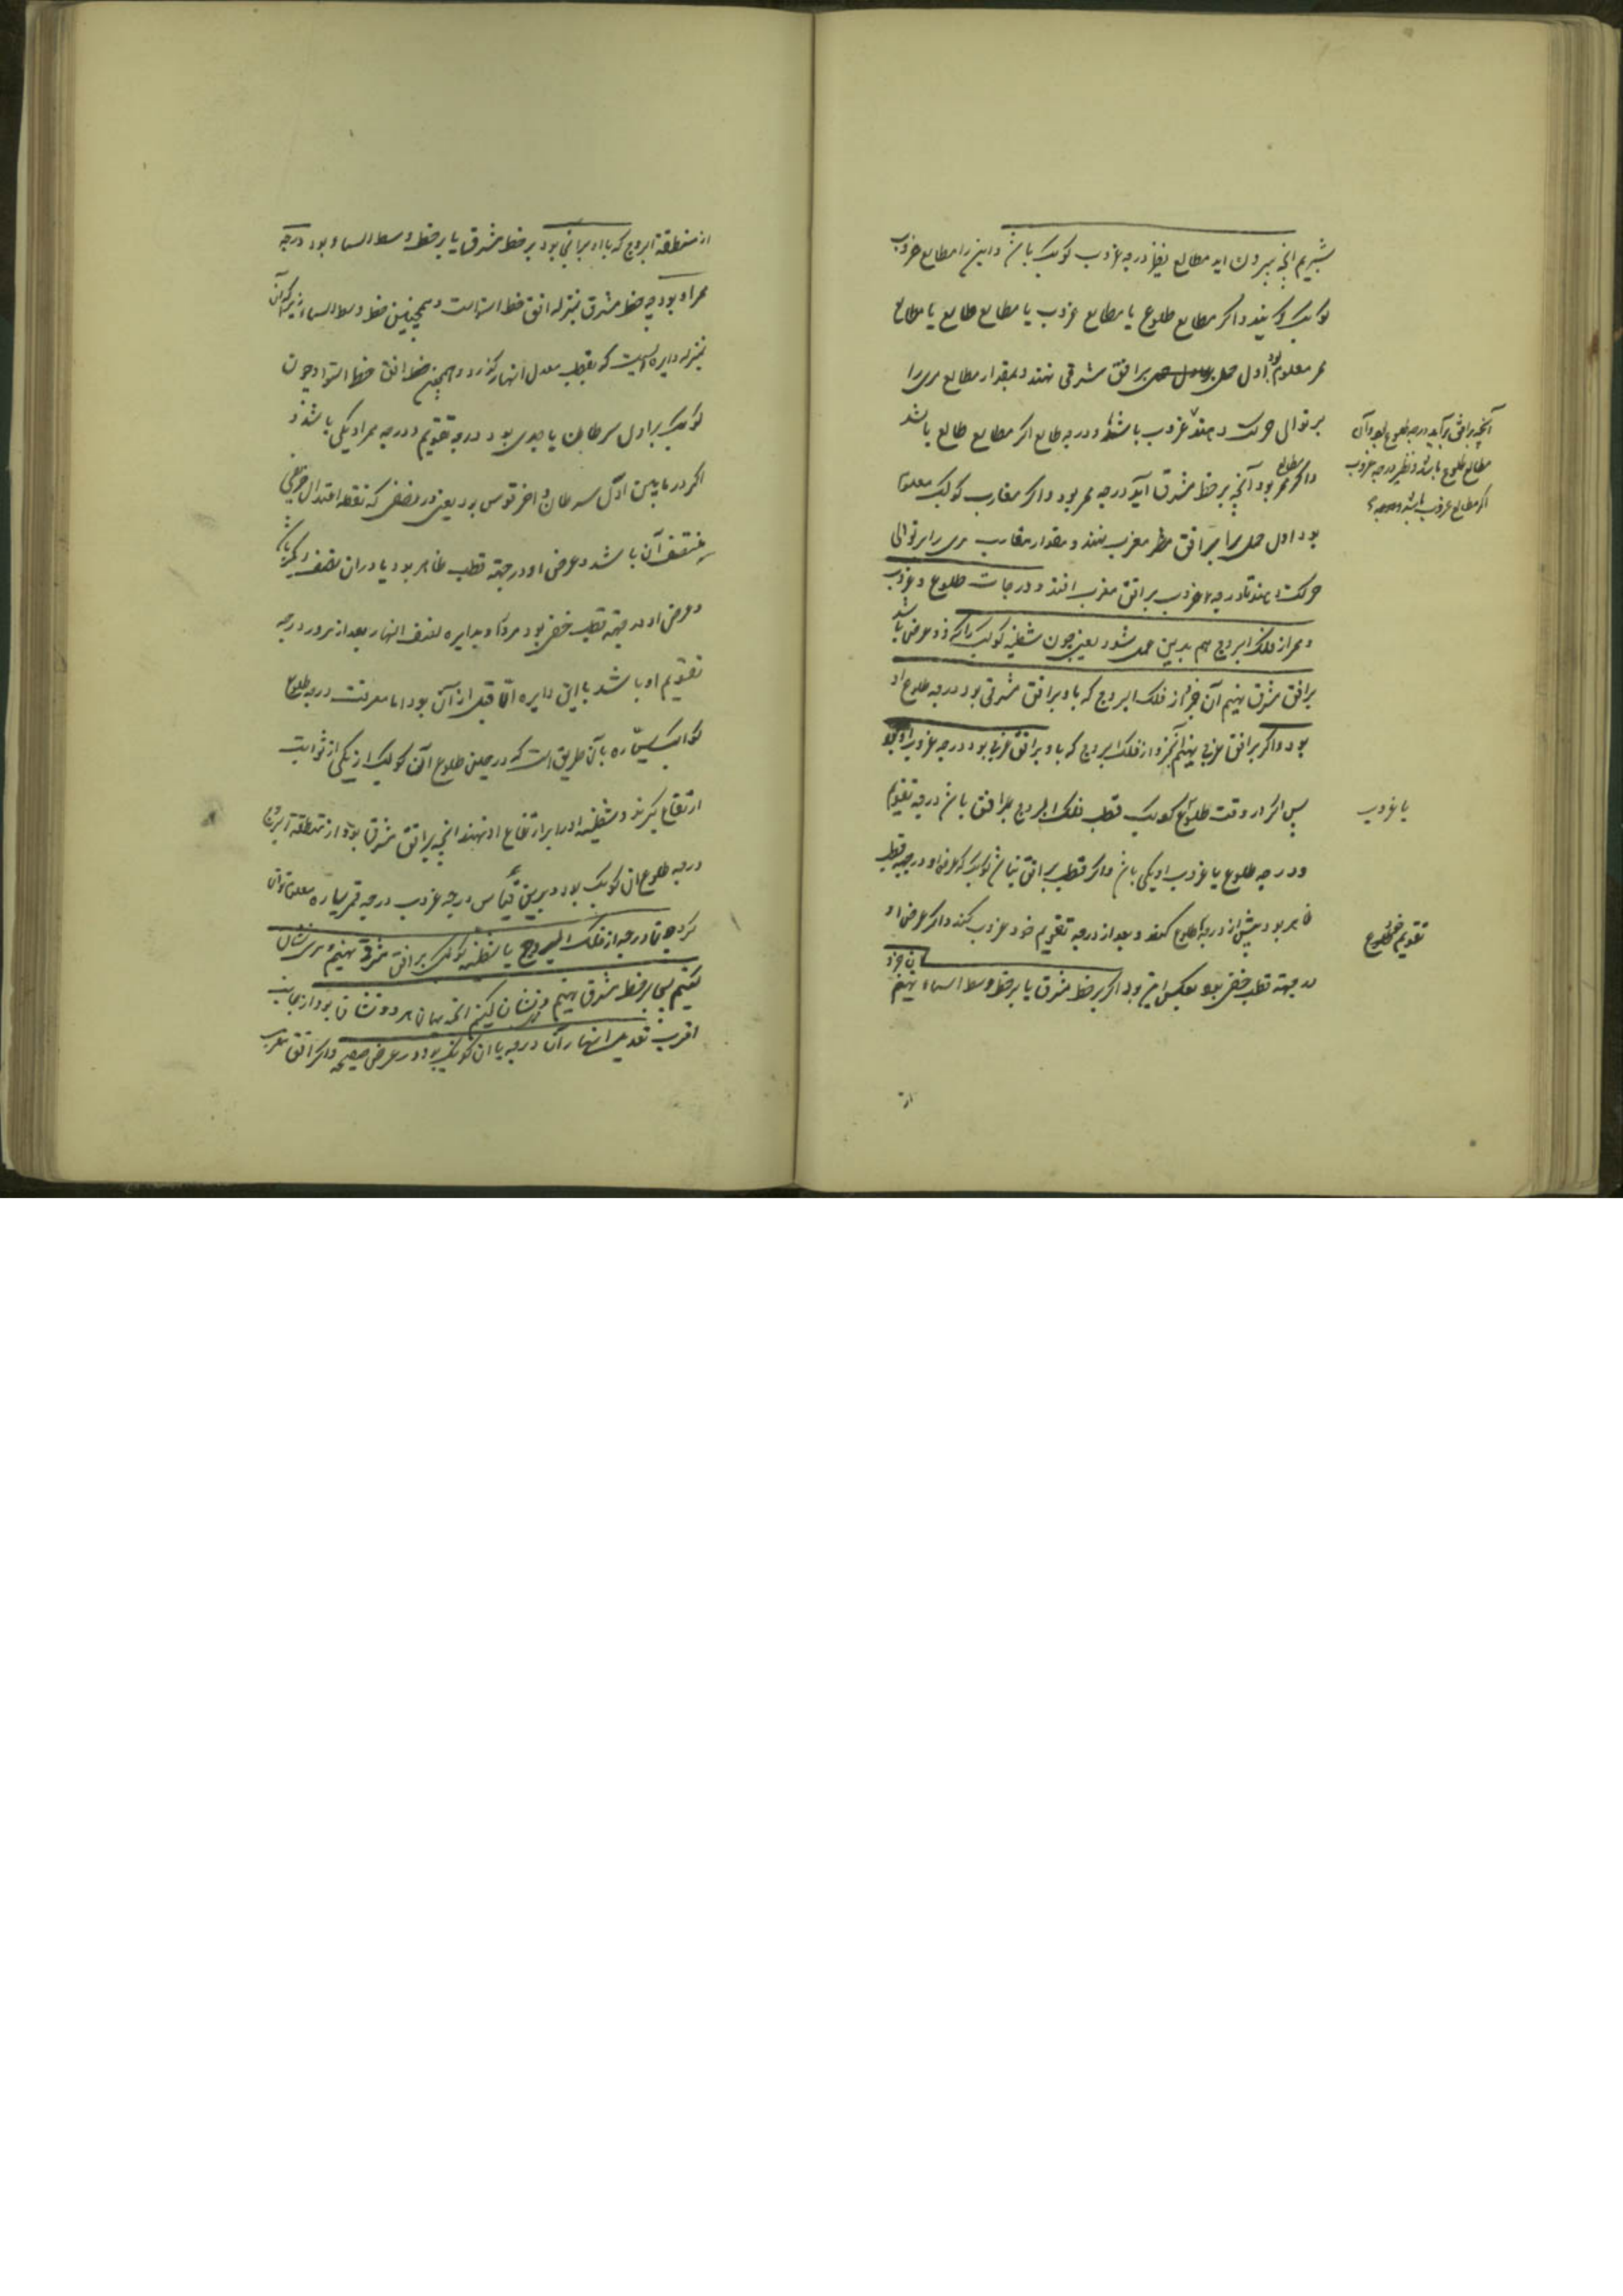 بشمریم انچه بیرون اید مطالع نظیر درجه غروب کوکب باشد و این را مطالع غروب
کوکب گویند و اکر مطالع طلوع یا مطالع غروب یا مطالع طالع یا مطالع
ممر معلوم بود اول حمل بر افق مشرقی نهند و بمقدار مطالع مری را
بر توالی حرکت دهند غروب باشد و درجه طالع اکر مطالع طالع باشد
آنچه بر افق آید درجه طلوع بود و آن
مطالع طلوع باشد و نظیر درجه غروب
اکر مطالع غروب باشد
و اکر مطالع ممر بود آنچه بر خط مشرق آید درجه ممر بود و اکر مغارب کوکب معلوم
بود اول حمل را بر افق مغرب نهند و مقدار مغارب مری را بر توالی
حرکت دهند تا درجه غروب بر افق مغرب افتد و درجات طلوع و غروب
و ممر از فلک البروج هم بدین عمل شود یعنی چون شظیه کوکب را که ذو عرض باشد
بر افق مشرق نهیم آن جزء از فلک البروج که با او بر افق مشرقی بود درجه طلوع او
بود و اکر بر افق غربی نهیم آن جزو از فلک البروج که با او بر افق غربی بود درجه غروب او بود
پس اکر در وقت طلوع کوکب قطب فلک البروج بر افق باشد درجه تقویم
یا غروب
و درجه طلوع یا غروب او یکی باشد و اکر قطب بر افق نباشد کوکب که عرض او در جهه قطب
ظاهر بود پیش از درجه طلوع کند و بعد از درجه تقویم خود غروب کند و اکر عرض او
تقویم خود طلوع
در جهة قطب خفی بود بعکس این بود اکر بر خط مشرق یا بر خط وسط السماء نهیم آن جزو
از
از منطقة البروج که با او بر آنجا بود بر خط مشرق یا بر خط وسط السماء بود درجه
ممر او بود چه خط مشرق بمنزله افق خط استواست و همچنین خط وسط السماء زیرا که آن
بمنزله دایره ایست که بقطب معدل النهار کذرد و همچنین خط افق خط استوا و چون
کوکب بر اول سرطان یا جدی بود درجه تقویم و درجه ممر او یکی باشد و
اکر در مابین اول سرطان و اخر قوس بود یعنی در نصفی که نقطه اعتدال خریفی
منتصف آن باشد و عرض او در جهة قطب ظاهر بود یا در ان نصف دیکر باشد
و عرض او در جهة قطب خفی بود مرور او بدایره نصف النهار بعد از مرور درجه
تقویم او باشد باین دایره و الا قبل از آن بود اما معرفت درجه طلوع
کواکب سیاره بآن طریق است که در حین طلوع آن کوکب از یکی از ثوابت
ارتفاع گیرند و شظیه او را بر ارتفاع او نهند انچه بر افق شرقی بود از منطقة البروج
درجه طلوع آن کوکب بود و برین قیاس درجه غروب و درجه ممر سیاره معلوم توان
کرد چون درجه از فلک البروج یا شظیه کوکب بر افق شرقی نهیم و مری نشان
کنیم پس بر خط مشرق نهیم و نشان کنیم انچه میان هر دو نشان بود از جانب
اقرب تعدیل النهار آن درجه یا ان کوکب بود در عرض صفیحه و اکر افق مغرب